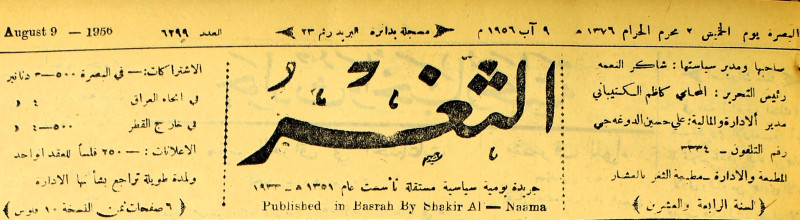 البصرة يوم الخميس ٢ محرم الحرام ١٣٧٦ هـ
٩ آب ١٩٥٦ م
مسجلة بدائرة البريد رقم ٢٣
العدد ٦٢٩٩
August 9 — 1956
صاحبها ومدير سياستها : شاكر النعمه
رئيس التحرير : المحامي كاظم الكشيباني
مدير الادارة والمالية : علي حسين الدوغه جي
رقم التلفون — ٣٣٣٤
المطبعة والادارة — مطبعة الثغر بالعشار
( لسنة الرابعة والعشرين )
الثغر
جريدة يومية سياسية مستقلة تأسست عام ١٣٥١ هـ — ١٩٣٣
Published in Basrah By Shakir Al — Naama
الاشتراكات : — في البصرة ٥٠٠—٣ دنانير
في انحاء العراق ٤ د
في خارج القطر ٥٠٠—٤ د
الاعلانات : — ٢٥٠ فلساً للعقد الواحد
ولمدة طويلة تراجع بشأنها الادارة
( ٦ صفحات ثمن النسخة ١٠ فلوس )